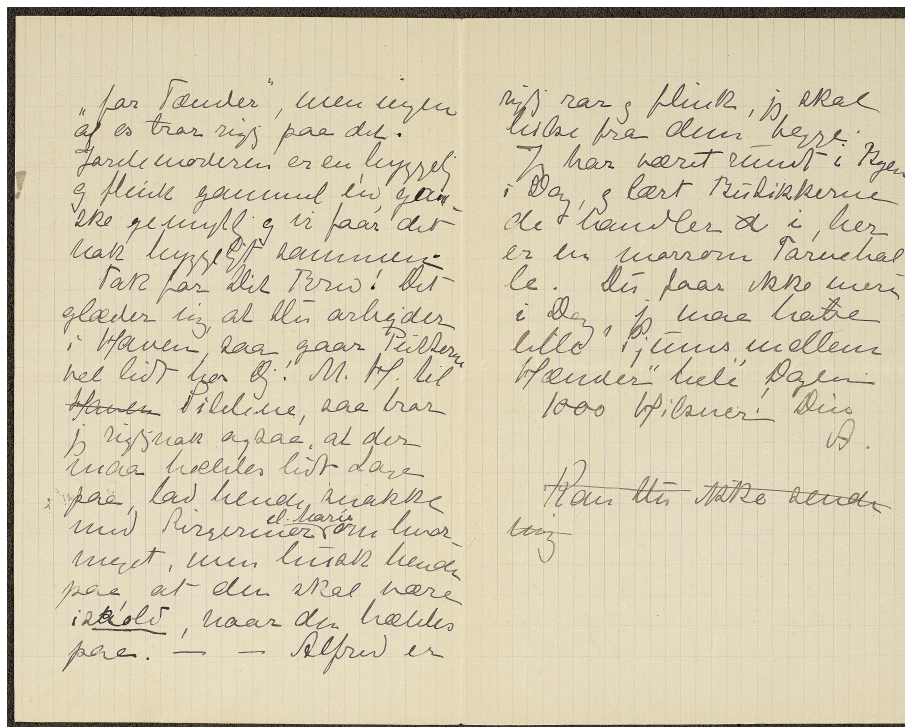 „for Tænder", men ingen
af os tror rigtig paa det.
Jordemoderen er en hyggelig
og flink gammel én, gan-
ske gemytlig og vi faar det
nok hyggeligt sammen.
Tak for Dit Brev! Det
glæder mig, at Du arbejder
i Haven, saa gaar
vel lidt for Dig! M. H. til
Haven Pillerne, saa tror
jeg rigtignok ogsaa, at der
maa hældes lidt Lage
paa, lad hende snakke
med
el. Marie
om hvor
meget, men husk hende
paa at den skal være
iskold, naar den hældes
paa. — — Alfred er
rigtig rar og flink, jeg skal
hilse fra dem begge.
Jeg har været rundt i Byen
i Dag, og lært Butikkerne
de handler i, her
er en morsom Torvehal-
le. Du faar ikke mere
i Dag, jeg maa have
lille mellem
Hænder" hele Dagen.
1000 Hilsner! Din
A.
Kan Du ikke sende
mig